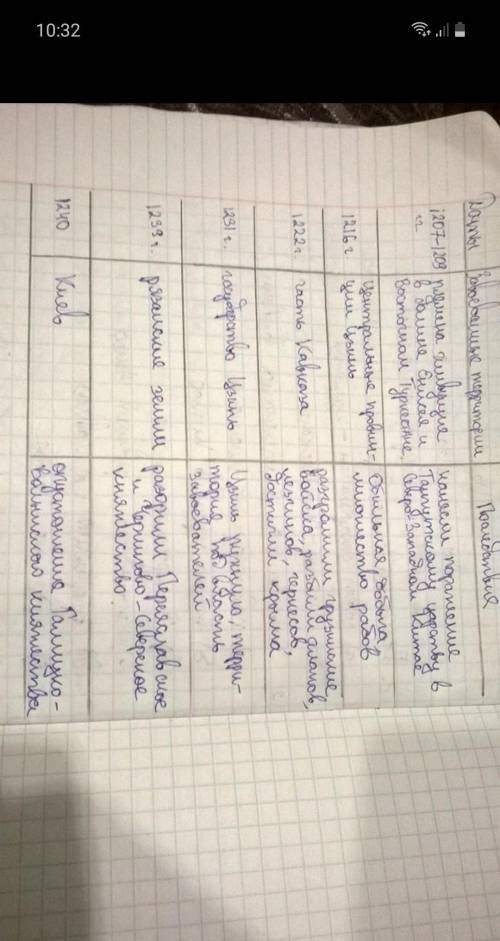 10:32
Даты
Завоёванные территории
Последствия
1207-1209
гг
племена живущие
в долине Енисея и
Восточном Туркестане
нанесли поражение
Тангутскому царству в
Северо-Западном Китае
1216 г
Центральные провин-
ции Цзинь
Обильная добыча
множество рабов
1222 г
часть Кавказа
разгромили грузинские
войска, разбили аланов,
черкесов,
достигли крыма
1231 г.
государство Цзинь
Цзинь рухнуло, терри-
тория под власть
завоевателей
1239 г.
рязанские земли
разорили Переяславское
и Чернигово-Северское
княжество
1240
Киев
опустошена Галицко-
Волынского княжества